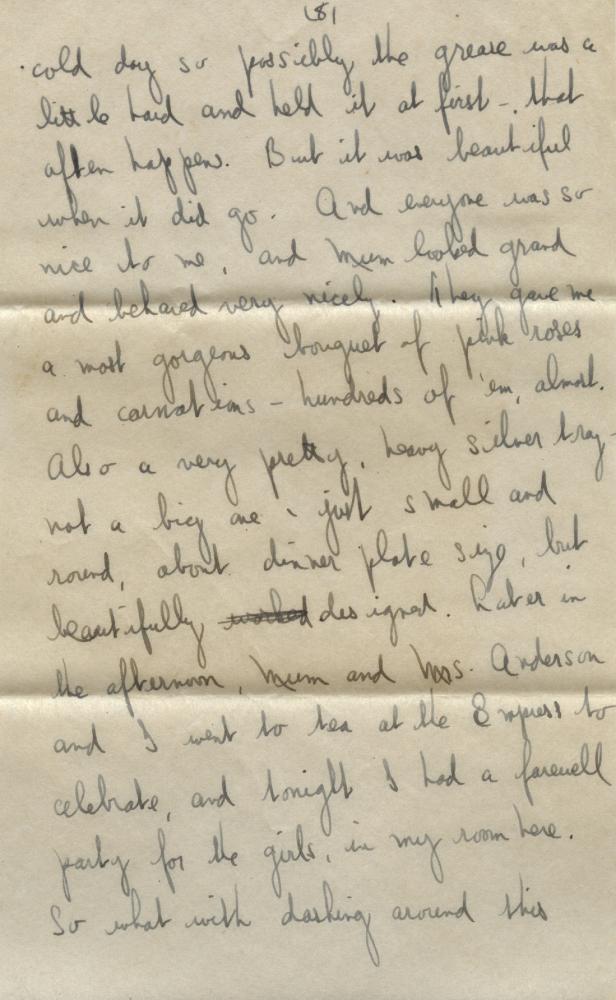 (8)
cold day so possibly the grease was a
little hard and held it at first - that
often happens. But it was beautiful
when it did go. And everyone was so
nice to me, and Mum looked grand
and behaved very nicely. They gave me
a most gorgeous bouquet of pink roses
and carnations - hundreds of 'em, almost.
Also a very pretty, heavy silver tray -
not a big one, just small and
round, about dinner plate size, but
beautifully worked designed. Later in
the afternoon, Mum and Mrs. Anderson
and I went to tea at the Empress to
celebrate, and tonight I had a farewell
party for the girls, in my room here.
So what with dashing around this